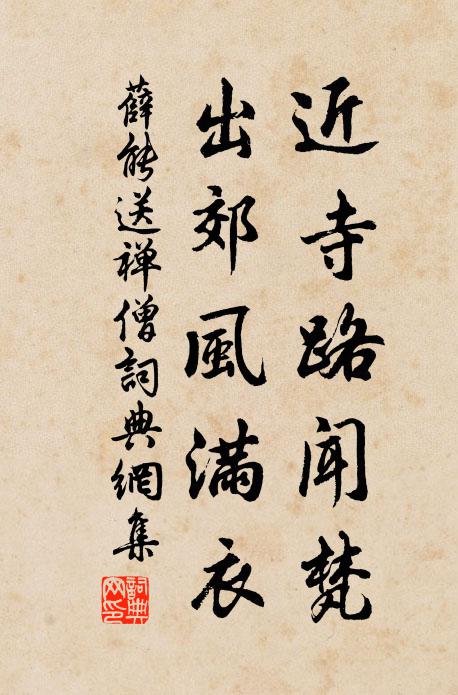 近寺路闻梵
出郊風满衣
薛能送禅僧詞典網集
詞典網印